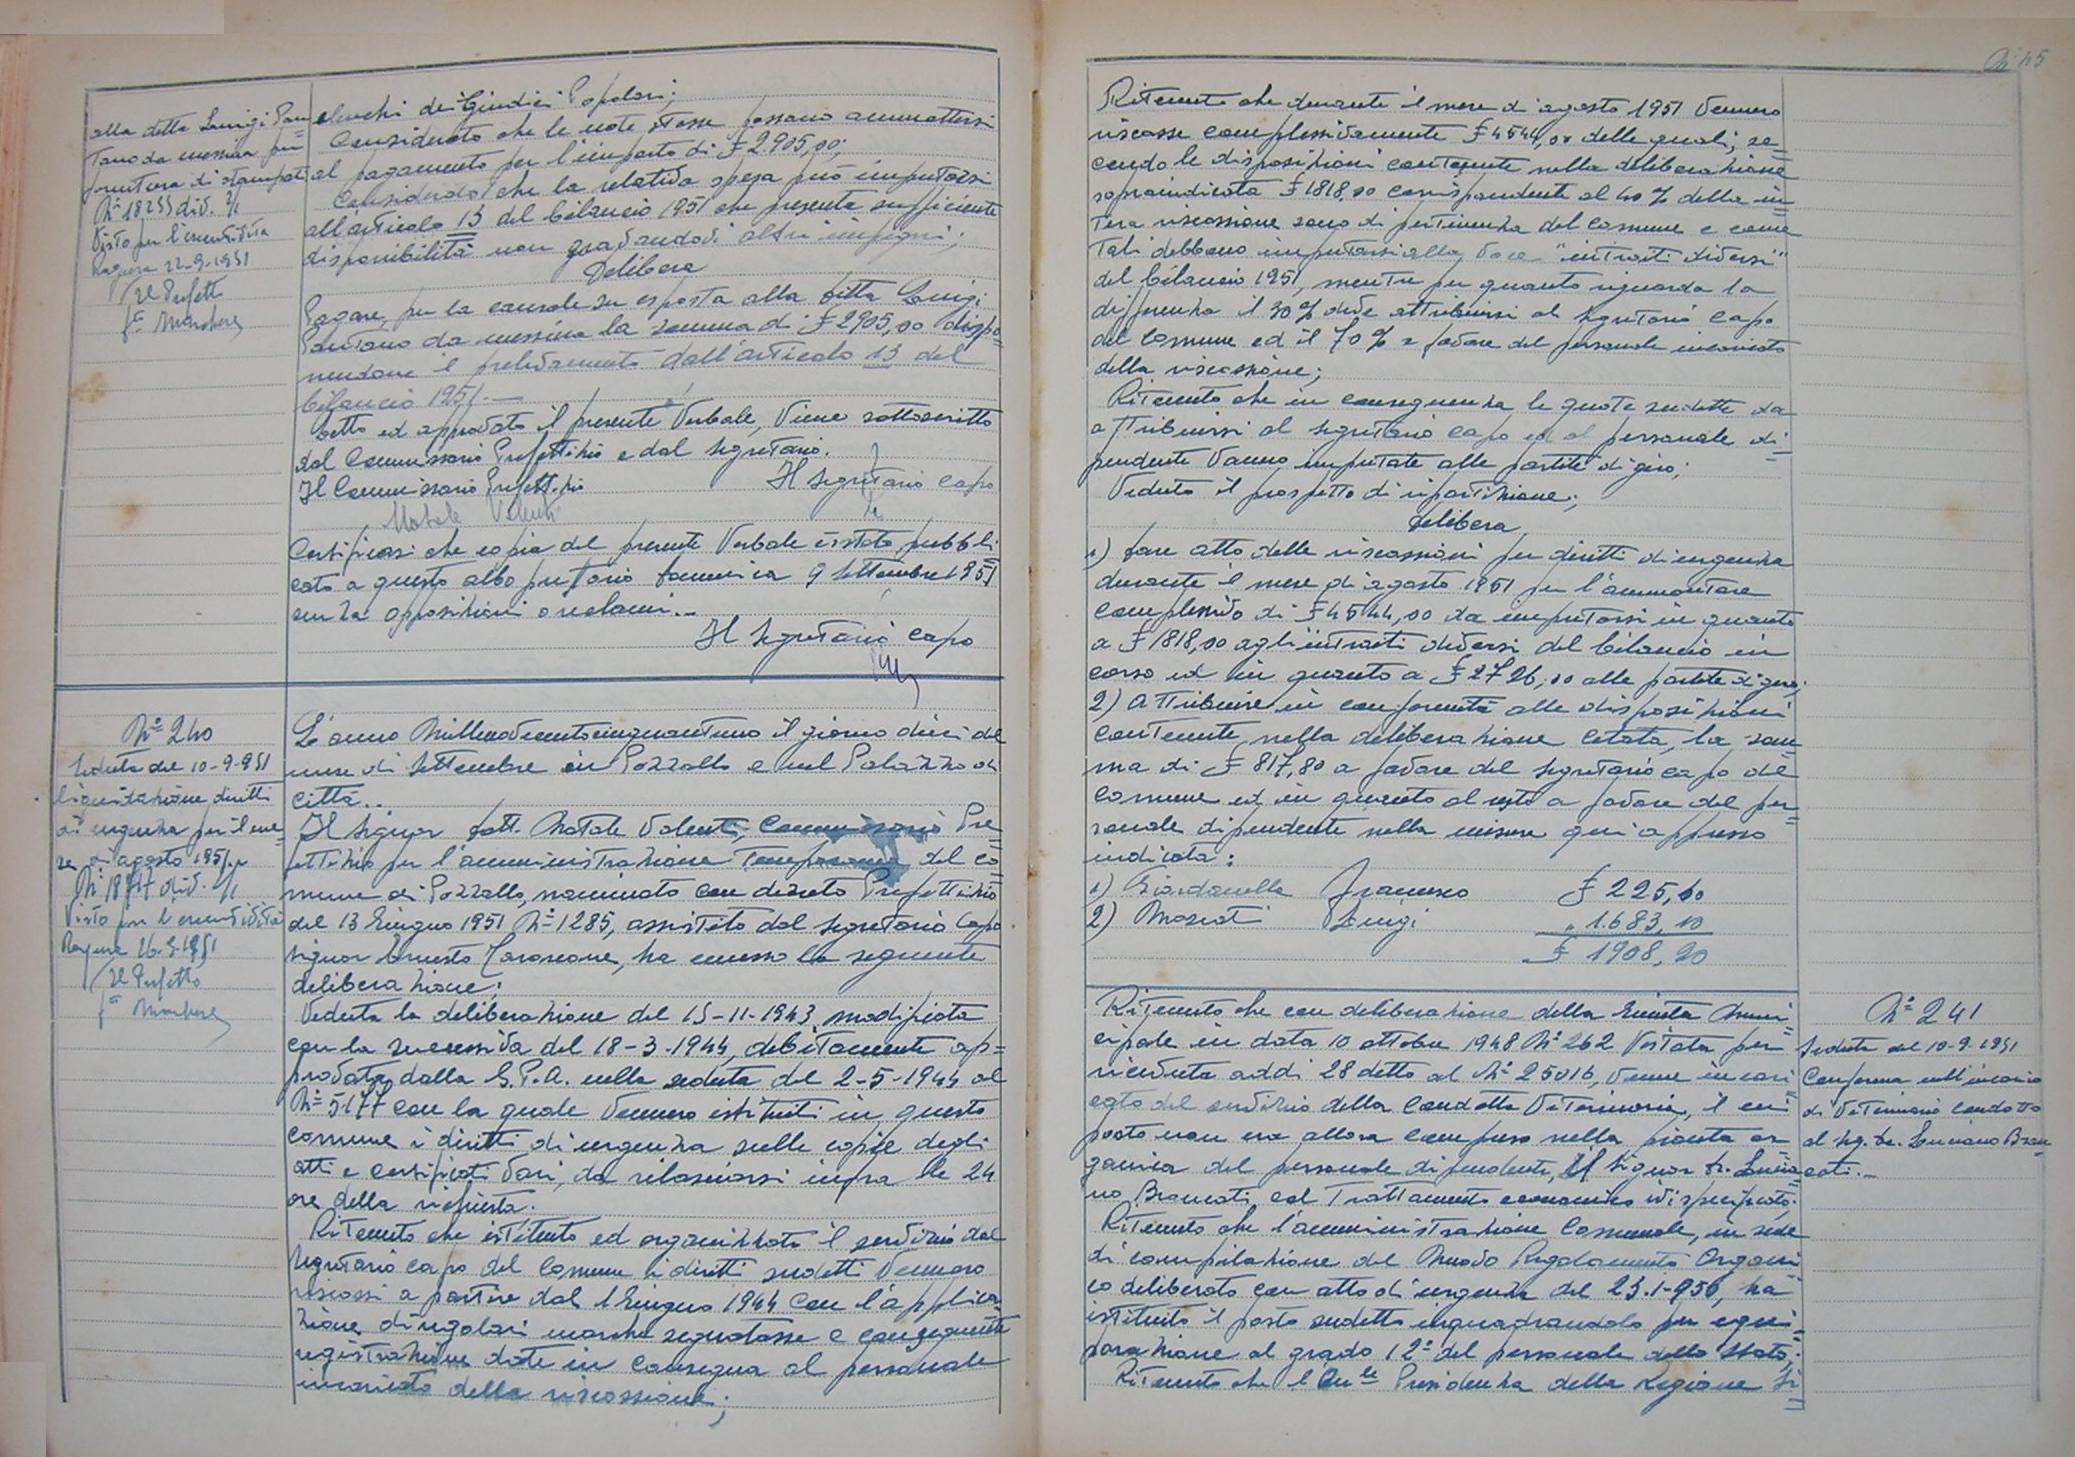 alla ditta Luigi Pan
tano da Messina per
fornitura di stampati
N° 18233 div. 2/1
Visto per l'esecutività
Ragusa 22-9-1951
Il Prefetto
elenchi dei Giudici Popolari;
Considerato che le note stesse possono ammettersi
al pagamento per l'importo di £ 2.905,00;
Considerato che la relativa spesa può imputarsi
all'articolo 13 del bilancio 1951 che presenta sufficiente
disponibilità non gravandovi altri impegni;
Delibera
Pagare, per la causale su esposta alla Ditta Luigi
Pantano da Messina la somma di £ 2905,00 dispo=
nendone il prelevamento dall'articolo 13 del
bilancio 1951.—
Letto ed approvato il presente Verbale, viene sottoscritto
dal Commissario Prefettizio e dal Segretario.
Il Commissario Prefettizio Il Segretario capo
Natale Valenti
Certificasi che copia del presente Verbale è stata pubbli
cata a questo albo pretorio domenica 9 Settembre 1951
senza opposizioni o reclami.—
Il Segretario capo
N° 240
Seduta del 10-9-951
liquidazione diritti
di urgenza per il me
se di agosto 1951.
N° 18717 div. 2/1
Visto per l'esecutività
Ragusa 26-9-1951
Il Prefetto
L'anno Millenovecentocinquantuno il giorno dieci del
mese di Settembre in Pozzallo e nel Palazzo di
città..
Il Signor Dott. Natale Valenti, Commissario Pre
fettizio per l'amministrazione temporanea del co
mune di Pozzallo, nominato con decreto Prefettizio
del 13 Giugno 1951 N° 1285, assistito dal Segretario Capo
Signor Ernesto, ha emesso la seguente
deliberazione:
Veduta la deliberazione del 15-11-1943 modificata
con la successiva del 18-3-1944, debitamente ap=
provata dalla G.P.A. nella seduta del 2-5-1944 al
N° 5177 con la quale vennero istituiti in questo
comune i diritti di urgenza sulle copie degli
atti e certificati vari, da rilasciarsi infra le 24
ore della richiesta.
Ritenuto che istituito ed organizzato il servizio dal
Segretario capo del Comune i diritti sudetti vennero
riscossi a partire dal 1 Giugno 1944 con l'applica=
zione di regolari marche segnatasse e conseguente
registrazione date in consegna al personale
incaricato della riscossione;
N° 45
Ritenuto che durante il mese di agosto 1951 vennero
riscosse complessivamente £ 4544,00 delle quali, se=
condo le disposizioni contenute nella deliberazione
sopraindicata £ 1818,00 corrispondente al 40% della in=
tera riscossione sono di pertinenza del Comune e come
tali debbono imputarsi alla voce "introiti diversi"
del bilancio 1951, mentre per quanto riguarda la
differenza il 30% deve attribuirsi al Segretario Capo
del Comune ed il 70% a favore del personale incaricato
della riscossione;
Ritenuto che in conseguenza le quote sudette da
attribuirsi al Segretario capo ed al personale di=
pendente vanno imputate alle partite di giro;
Veduto il prospetto di ripartizione;
Delibera
1) fare atto delle riscossioni per diritti di urgenza
durante il mese di agosto 1951 per l'ammontare
complessivo di £ 4544,00 da imputarsi in quanto
a £ 1818,00 agli introiti diversi del bilancio in
corso ed in quanto a £ 2726,00 alle partite di giro;
2) Attribuire in conformità alle disposizioni
contenute nella deliberazione citata, la som
ma di £ 817,80 a favore del Segretario capo del
comune ed in quanto al resto a favore del per=
sonale dipendente nella misura qui appresso
indicata:
1) Giardanella Francesco £ 225,10
2) Moscati Luigi " 1.683,10
£ 1908,20
Ritenuto che con deliberazione della Giunta Muni=
cipale in data 10 ottobre 1948 N° 262 Vistata per
ricevuta addì 28 detto al N° 25016, venne incari
cato del servizio della condotta Veterinaria, il cui
posto non era allora compreso nella pianta or
ganica del personale dipendente, il Signor Dr. Lucia=
no Brancati, col trattamento economico ivi specificato.
Ritenuto che l'amministrazione Comunale, in sede
di compilazione del Nuovo Regolamento Organi
co deliberato con atto di urgenza del 23.1-950, ha
istituito il posto sudetto inquadrandolo per equi=
parazione al grado 12° del personale dello Stato;
Ritenuto che l'On.le Presidenza della Regione Si=
N° 241
Seduta del 10-9-1951
Conferma nell'incarico
di Veterinario condotto
al Sig. Dr. Luciano Bran=
cati.—